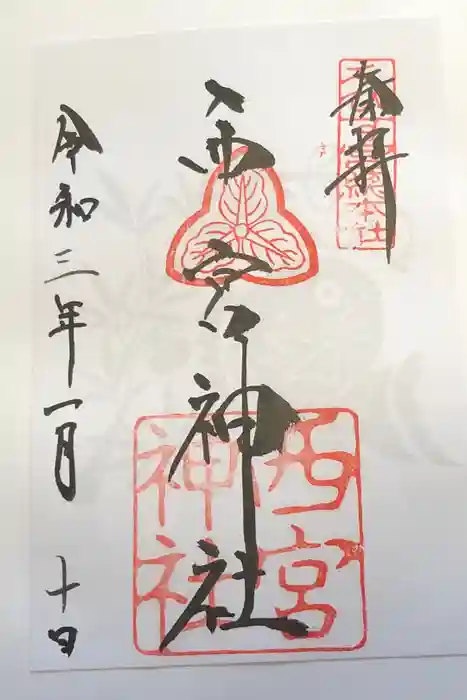 奉拝
総本社
西宮神社
西宮
神社
令和三年一月十日